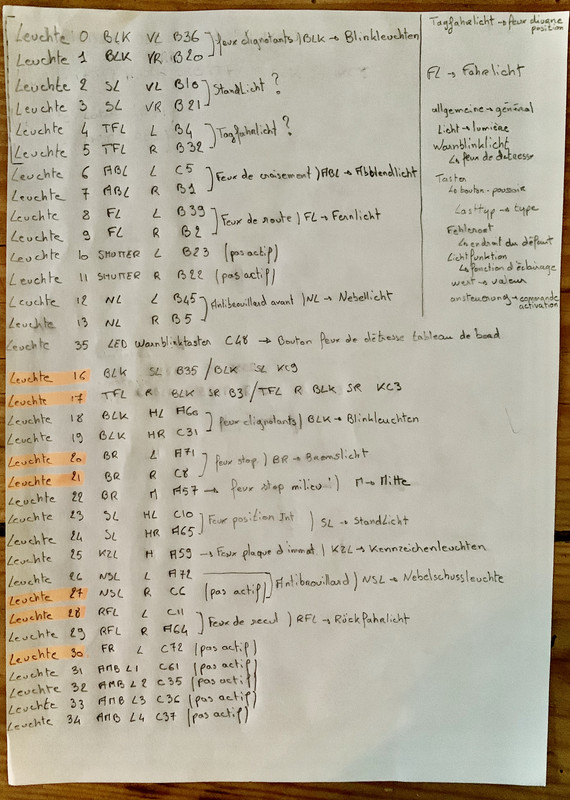 Leuchte 0 BLK VL B36
Leuchte 1 BLK VR B20
feux clignotants) BLK → Blinkleuchten
Leuchte 2 SL VL B10
Leuchte 3 SL VR B21
StandLicht ?
Leuchte 4 TFL L B4
Leuchte 5 TFL R B32
Tagfahrlicht ?
Leuchte 6 ABL L C5
Leuchte 7 ABL R B1
Feux de croisement) ABL → Abblendlicht
Leuchte 8 FL L B39
Leuchte 9 FL R B2
Feux de route) FL → Fernlicht
Leuchte 10 SHUTTER L B23 (pas actif)
Leuchte 11 SHUTTER R B22 (pas actif)
Leuchte 12 NL L B45
Leuchte 13 NL R B5
Antibrouillard avant) NL → Nebellicht
Leuchte 35 LED Warnblinktaster C48 → Bouton feux de détresse tableau de bord
Leuchte 16 BLK SL B35 / BLK SL KC9
Leuchte 17 TFL R BLK SR B31 / TFL R BLK SR KC3
Leuchte 18 BLK HL A60
Leuchte 19 BLK HR C31
feux clignotants) BLK → Blinkleuchten
Leuchte 20 BR L A71
Leuchte 21 BR R C8
feux stop) BR → Bremslicht
Leuchte 22 BR M A57 → feux stop milieu!) M → Mitte
Leuchte 23 SL HL C10
Leuchte 24 SL HR A65
Feux position Int) SL → StandLicht
Leuchte 25 KZL H A59 → Feux plaque d'immat) KZL → Kennzeichenleuchten
Leuchte 26 NSL L A72
Leuchte 27 NSL R C6 (pas actif)
Antibrouillard) NSL → Nebelschussleuchte
Leuchte 28 RFL L C11
Leuchte 29 RFL R A64
Feux de recul) RFL → Rückfahrlicht
Leuchte 30 FR L C72 (pas actif)
Leuchte 31 AMB L1 C61 (pas actif)
Leuchte 32 AMB L2 C35 (pas actif)
Leuchte 33 AMB L3 C36 (pas actif)
Leuchte 34 AMB L4 C37 (pas actif)
Tagfahrlicht → feux diurne
position
FL → Fahrlicht
allgemeine → général
Licht → lumière
Warnblinklicht
↳ feux de détresse
Taster
↳ bouton-poussoir
Lasttyp → type
Fehlerort
↳ endroit du défaut
Lichtfunktion
↳ fonction d'éclairage
wert → valeur
ansteuerung → commande
activation